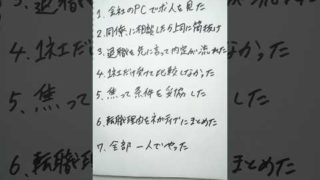 1、会社のPCで求人を見た
2、同僚に相談したら上司に筒抜け
3、退職を先に言って内定が流れた
4、1社だけ受けて比較しなかった
5、焦って条件を妥協した
6、転職理由をネガティブにまとめた
7、全部一人でやった